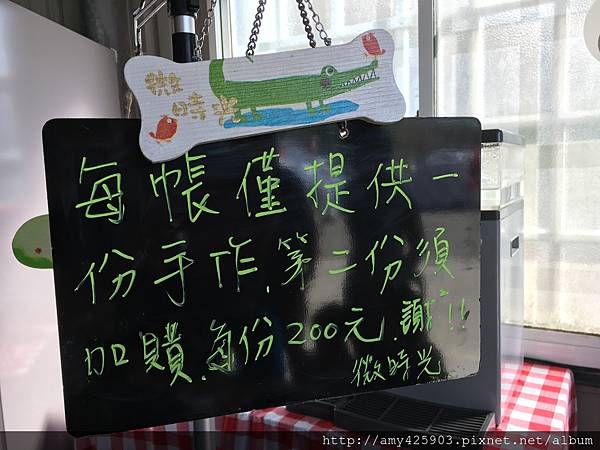 微時光
每帳僅提供一
份手作,第二份須
加購,每份200元,謝〻!!
微時光
http://amy425903.pixnet.net/album